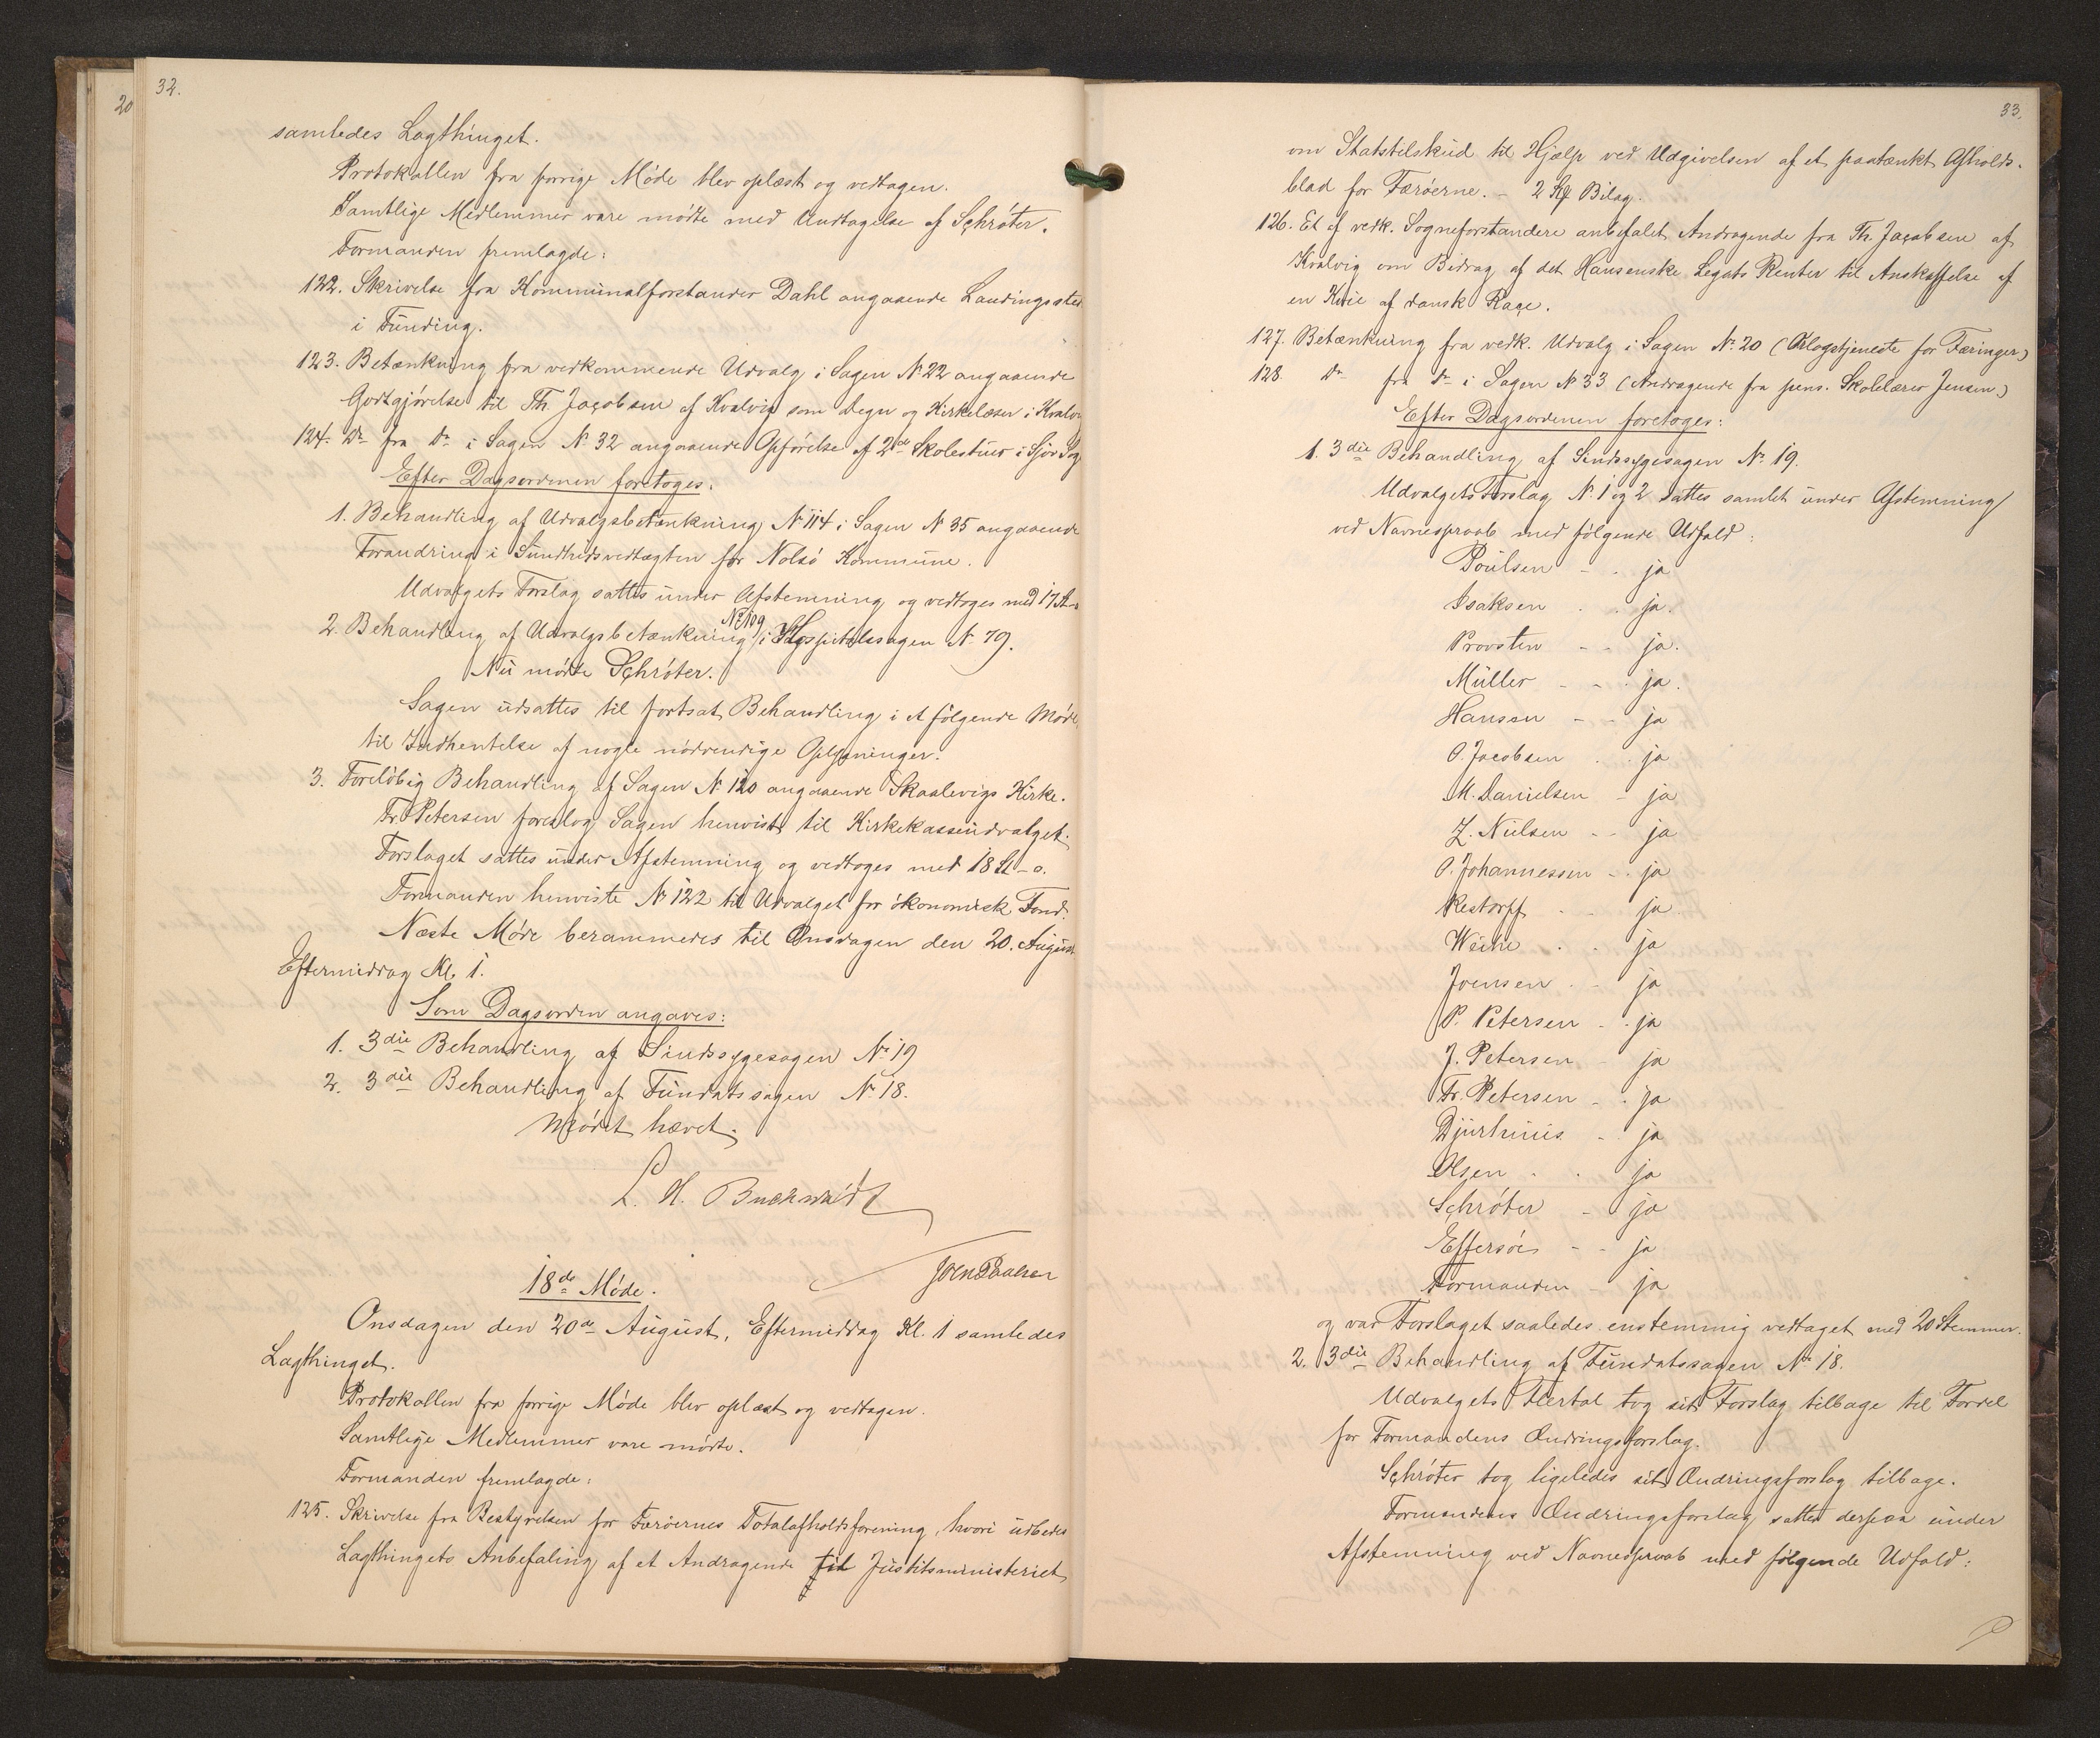 20
32.
samledes Lagthinget.
Protokollen fra forrige Møde blev oplæst og vedtagen.
Samtlige Medlemmer vare mødte med Undtagelse af Schrøter.
Formanden fremlagde:
122. Skrivelse fra Kommunalforstander Dahl angaaende Landingssted
i Funding.
123. Betænkning fra vedkommende Udvalg i Sagen No 22 angaaende
Godtgjørelse til Th. Jacobsen af Kvalvig som Degn og Kirkelæser i Kvalvig
124. Do fra Do i Sagen No 32 angaaende Opførelse af 2de Skolestuer i Sjov Sog
Efter Dagsordenen foretoges.
1. Behandling af Udvalgsbetænkning No 114 i Sagen No 35 angaaende
Forandring i Sundhedsvedtægten for Nolsø Kommune.
Udvalgets Forslag sattes under Afstemning og vedtoges med 17 St-o
2. Behandling af Udvalgsbetænkning No 109 i Hospitalssagen No 79.
Nu mødte Schrøter.
Sagen udsattes til fortsat Behandling i et følgende Møde
til Indhentelse af nogle nødvendige Oplysninger.
3. Foreløbig Behandling af Sagen No 120 angaaende Skaalevigs Kirke.
Fr. Petersen foreslog Sagen henvist til Kirkekasseudvalget.
Forslaget sattes under Afstemning og vedtoges med 18 St - o.
Formanden henviste No 122 til Udvalget for økonomisk Fond.
Næste Møde berammedes til Onsdagen den 20. August
Eftermiddag Kl. 1.
Som Dagsorden angaves:
1. 3die Behandling af Sindssygesagen No 19
2. 3die Behandling af Fundatssagen No 18.
Mødet hævet.
L. H. Buchwaldt
Joen Poulsen
18de Møde.
Onsdagen den 20de August, Eftermiddag Kl. 1 samledes
Lagthinget.
Protokollen fra forrige Møde blev oplæst og vedtagen.
Samtlige Medlemmer vare mødte.
Formanden fremlagde:
125. Skrivelse fra Bestyrelsen for Færøernes Totalafholdsforening, hvori udbedes
Lagthingets Anbefaling af et Andragende til Justitsministeriet
33.
om Statstilskud til Hjælp ved Udgivelsen af et paatænkt Afholds-
blad for Færøerne. - 2 Bilag.
126. Et af vedk. Sogneforstandere anbefalet Andragende fra Th. Jacobsen af
Kvalvig om Bidrag af det Hansenske Legats Renter til Anskaffelse af
en Kvie af dansk Race.
127. Betænkning fra vedk. Udvalg i Sagen No 20 (Orlogstjeneste for Færinger)
128. Do fra Do i Sagen No 33 (Andragende fra pens. Skolelærer Jensen.)
Efter Dagsordenen foretoges:
1. 3die Behandling af Sindssygesagen No 19.
Udvalgets Forslag No 1 og 2 sattes samlet under Afstemning
ved Navneopraab med følgende Udfald:
Poulsen - - ja
Isaksen . . ja.
Provsten - - ja.
Müller - - ja.
Hansen - - ja
O. Jacobsen . . ja
M. Danielsen - ja
Z. Nielsen - - ja
O. Johannessen - . ja
Restorff . . ja
Weihe . . ja
Joensen . - ja
P. Petersen - . ja
J. Petersen - ja
Fr. Petersen - . ja
Djurhuus - ja
Olsen . . ja
Schrøter - ja
Effersøe - - ja
Formanden - ja
og var Forslaget saaledes enstemmig vedtaget med 20 Stemmer.
2. 3die Behandling af Fundatssagen No 18.
Udvalgets Flertal tog sit Forslag tilbage til Fordel
for Formandens Ændringsforslag.
Schrøter tog ligeledes sit Ændringsforslag tilbage.
Formandens Ændringsforslag sattes derpaa under
Afstemning ved Navneopraab med følgende Udfald: